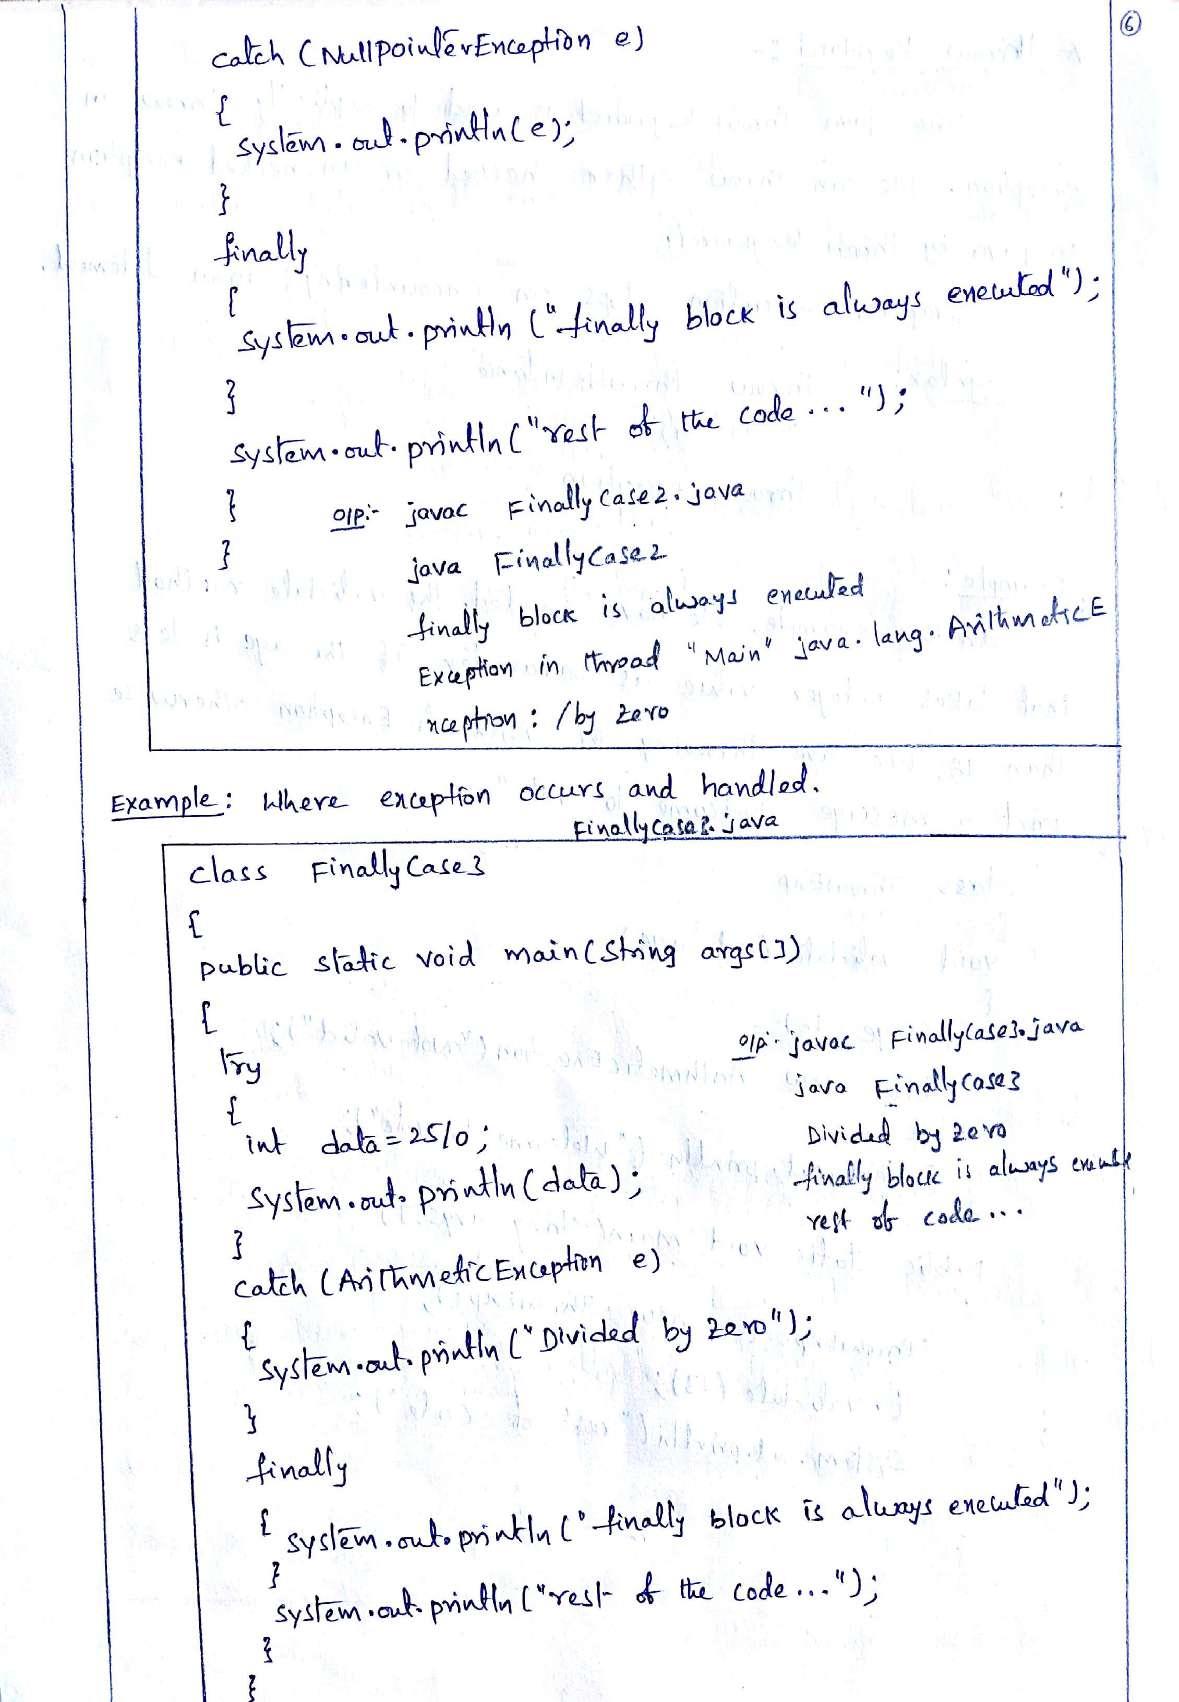 6
catch (NullPointerException e)
{
system.out.println(e);
}
finally
{
system.out.println ("finally block is always executed");
}
system.out.println ("rest of the code ... ");
}
o/p:- javac FinallyCase2.java
}
java FinallyCase2
finally block is always executed
Exception in thread "Main" java.lang.ArithmeticE
xception : / by zero
Example: Where exception occurs and handled.
FinallyCase3.java
class FinallyCase3
{
public static void main(String args[])
{
Try
{
int data = 25/0;
system.out.println(data);
}
catch (ArithmeticException e)
{
system.out.println ("Divided by zero");
}
finally
{
system.out.println ("finally block is always executed");
}
system.out.println ("rest of the code ...");
}
}
o/p:- javac FinallyCase3.java
java FinallyCase3
Divided by zero
finally block is always
rest of code ...